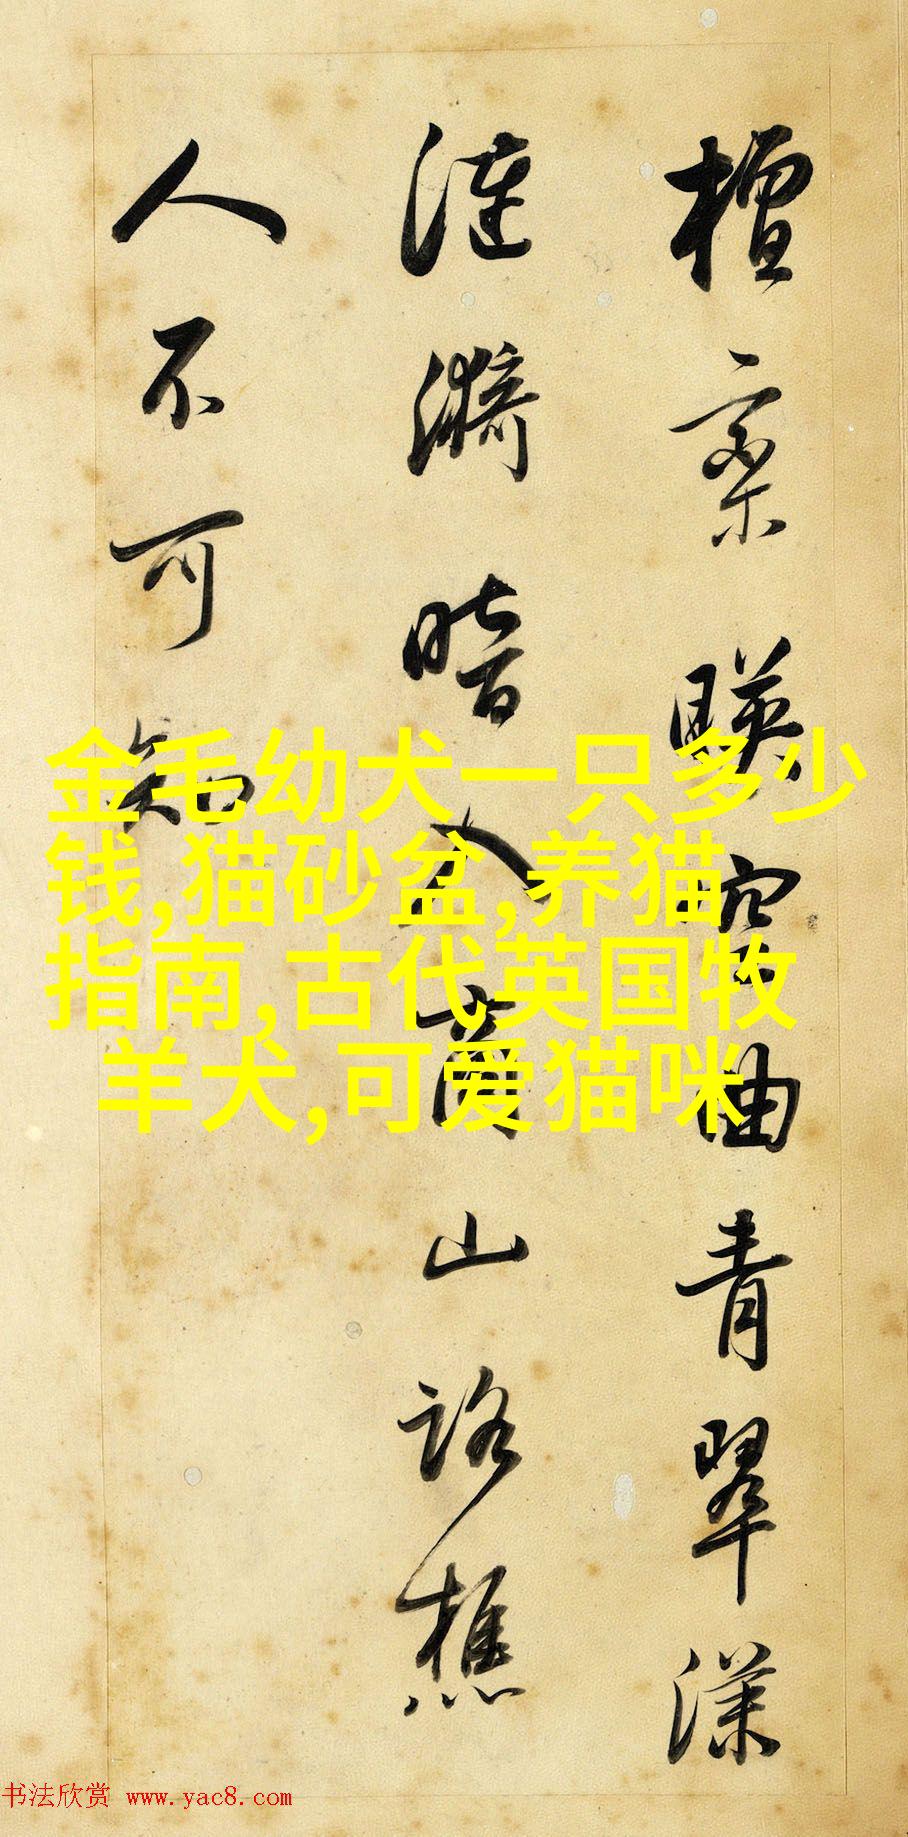 檀欒暎空曲青翠漾
漣漪暗入商山路樵
人不可知
金毛幼犬一只多少
钱,猫砂盆,养猫
指南,古代英国牧
羊犬,可爱猫咪
书法欣赏 www.yac8.com